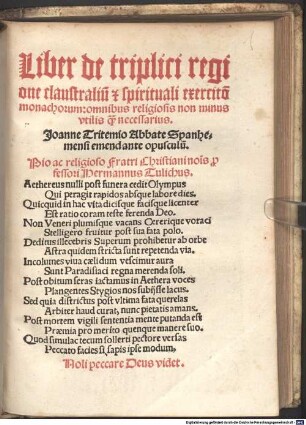 Liber de triplici regi
one claustraliū ⁊ spirituali exercitio
monachorum: omnibus religiosis non minus
vtilis q̄ necessarius.
Joanne Tritemio Abbate Spanhe-
mensi emendante opusculū.
Pio ac religioso Fratri Christiani nois p̱
fessori Hermannus Tulichus.
Aethereus nulli post funera cedit Olympus
Qui peragit rapidos absque labore dies.
Quicquid in hac vita dicisque facisque licenter
Est ratio coram teste ferenda Deo.
Non Veneri plumisque vacans Cererique voraci
Stelligero fruitur post sua fata polo.
Deditus illecebris Superum prohibetur ab orbe
Astra quidem stricta sunt repetenda via.
Incolumes vita cælidum vescimur aura
Sunt Paradisiaci regna merenda soli.
Post obitum seras iactamus in Aethera voces
Plangentes Stygios nos subijsse lacus.
Sed quia districtus post vltima fata querelas
Arbiter haud curat, nunc pietatis amans.
Post mortem vigili sententia mente putanda est
Præmia pro merito quenque manere suo.
Quod simulac tecum sollerti pectore versas
Peccato facies si sapis ipse modum,
Noli peccare Deus videt.